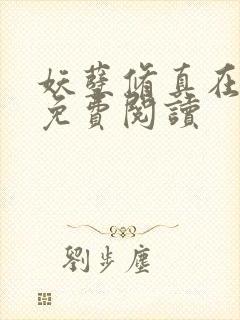 妖孽脩真在
免費閱讀
劉步塵